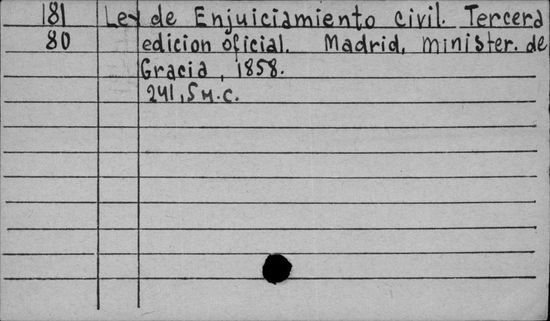 181 Ley de Enjuiciamiento civil. Tercera
80 edicion oficial. Madrid, minister. de
Gracia, 1858.
241,5 H.C.